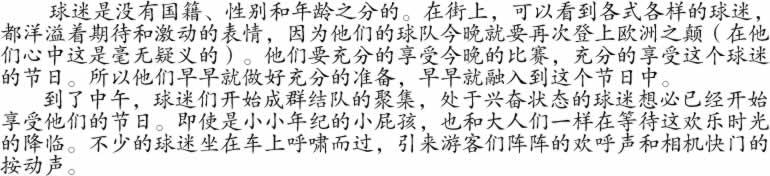 球迷是没有国籍、性别和年龄之分的。在街上，可以看到各式各样的球迷，
都洋溢着期待和激动的表情，因为他们的球队今晚就要再次登上欧洲之颠（在他
们心中这是毫无疑义的）。他们要充分的享受今晚的比赛，充分的享受这个球迷
的节日。所以他们早早就做好充分的准备，早早就融入到这个节日中。
到了中午，球迷们开始成群结队的聚集，处于兴奋状态的球迷想必已经开始
享受他们的节日。即使是小小年纪的小屁孩，也和大人们一样在等待这欢乐时光
的降临。不少的球迷坐在车上呼啸而过，引来游客们阵阵的欢呼声和相机快门的
按动声。